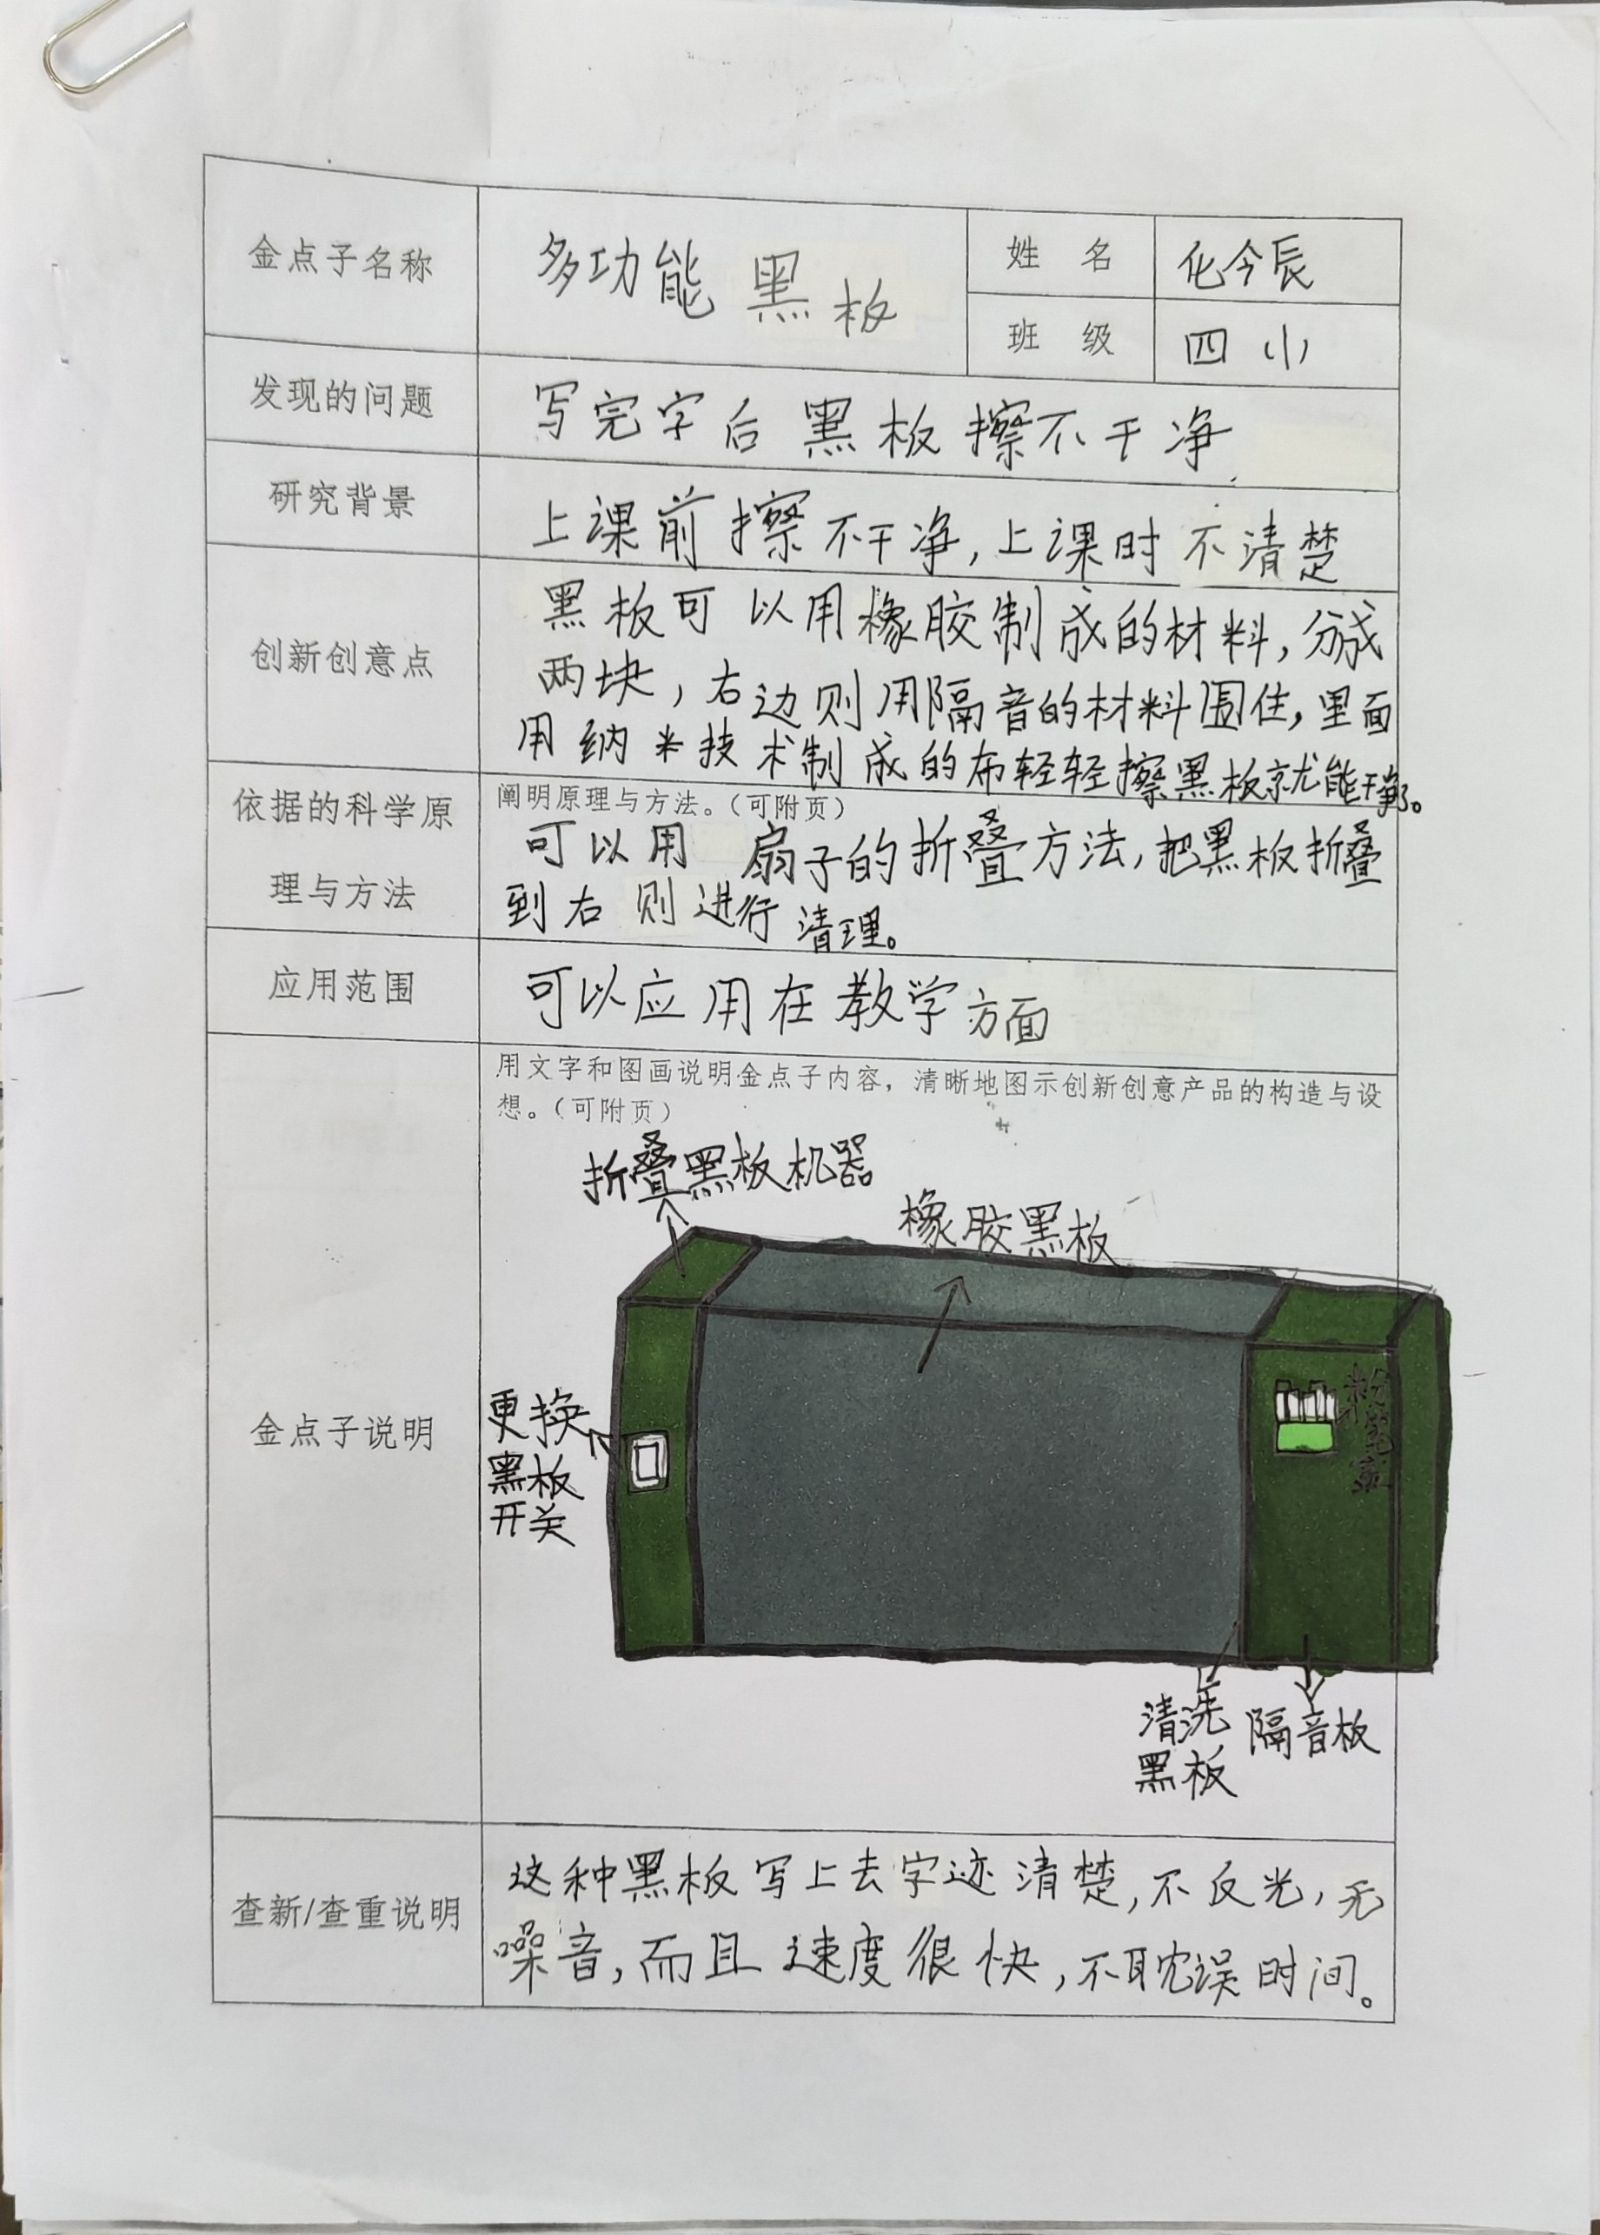 金点子名称
多功能黑板
姓 名
化今辰
班 级
四小
发现的问题
写完字后黑板擦不干净
研究背景
上课前擦不干净,上课时不清楚
创新创意点
黑板可以用橡胶制成的材料,分成
两块,右边则用隔音的材料围住,里面
用纳米技术制成的布轻轻擦黑板就能干净。
依据的科学原
理与方法
阐明原理与方法。（可附页）
可以用扇子的折叠方法,把黑板折叠
到右则进行清理。
应用范围
可以应用在教学方面
金点子说明
用文字和图画说明金点子内容，清晰地图示创新创意产品的构造与设
想。（可附页）
折叠黑板机器
橡胶黑板
更换
黑板
开关
粉笔盒
清洗
黑板
隔音板
查新/查重说明
这种黑板写上去字迹清楚,不反光,无
噪音,而且速度很快,不耽误时间。